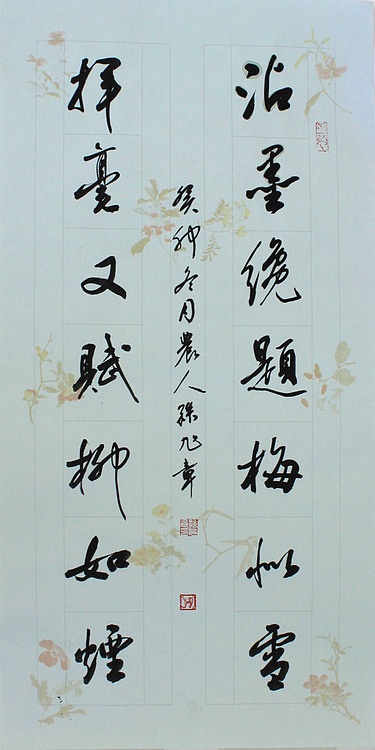 沾墨纔題梅似雪
揮毫又賦柳如煙
癸卯冬月農人孫旭章